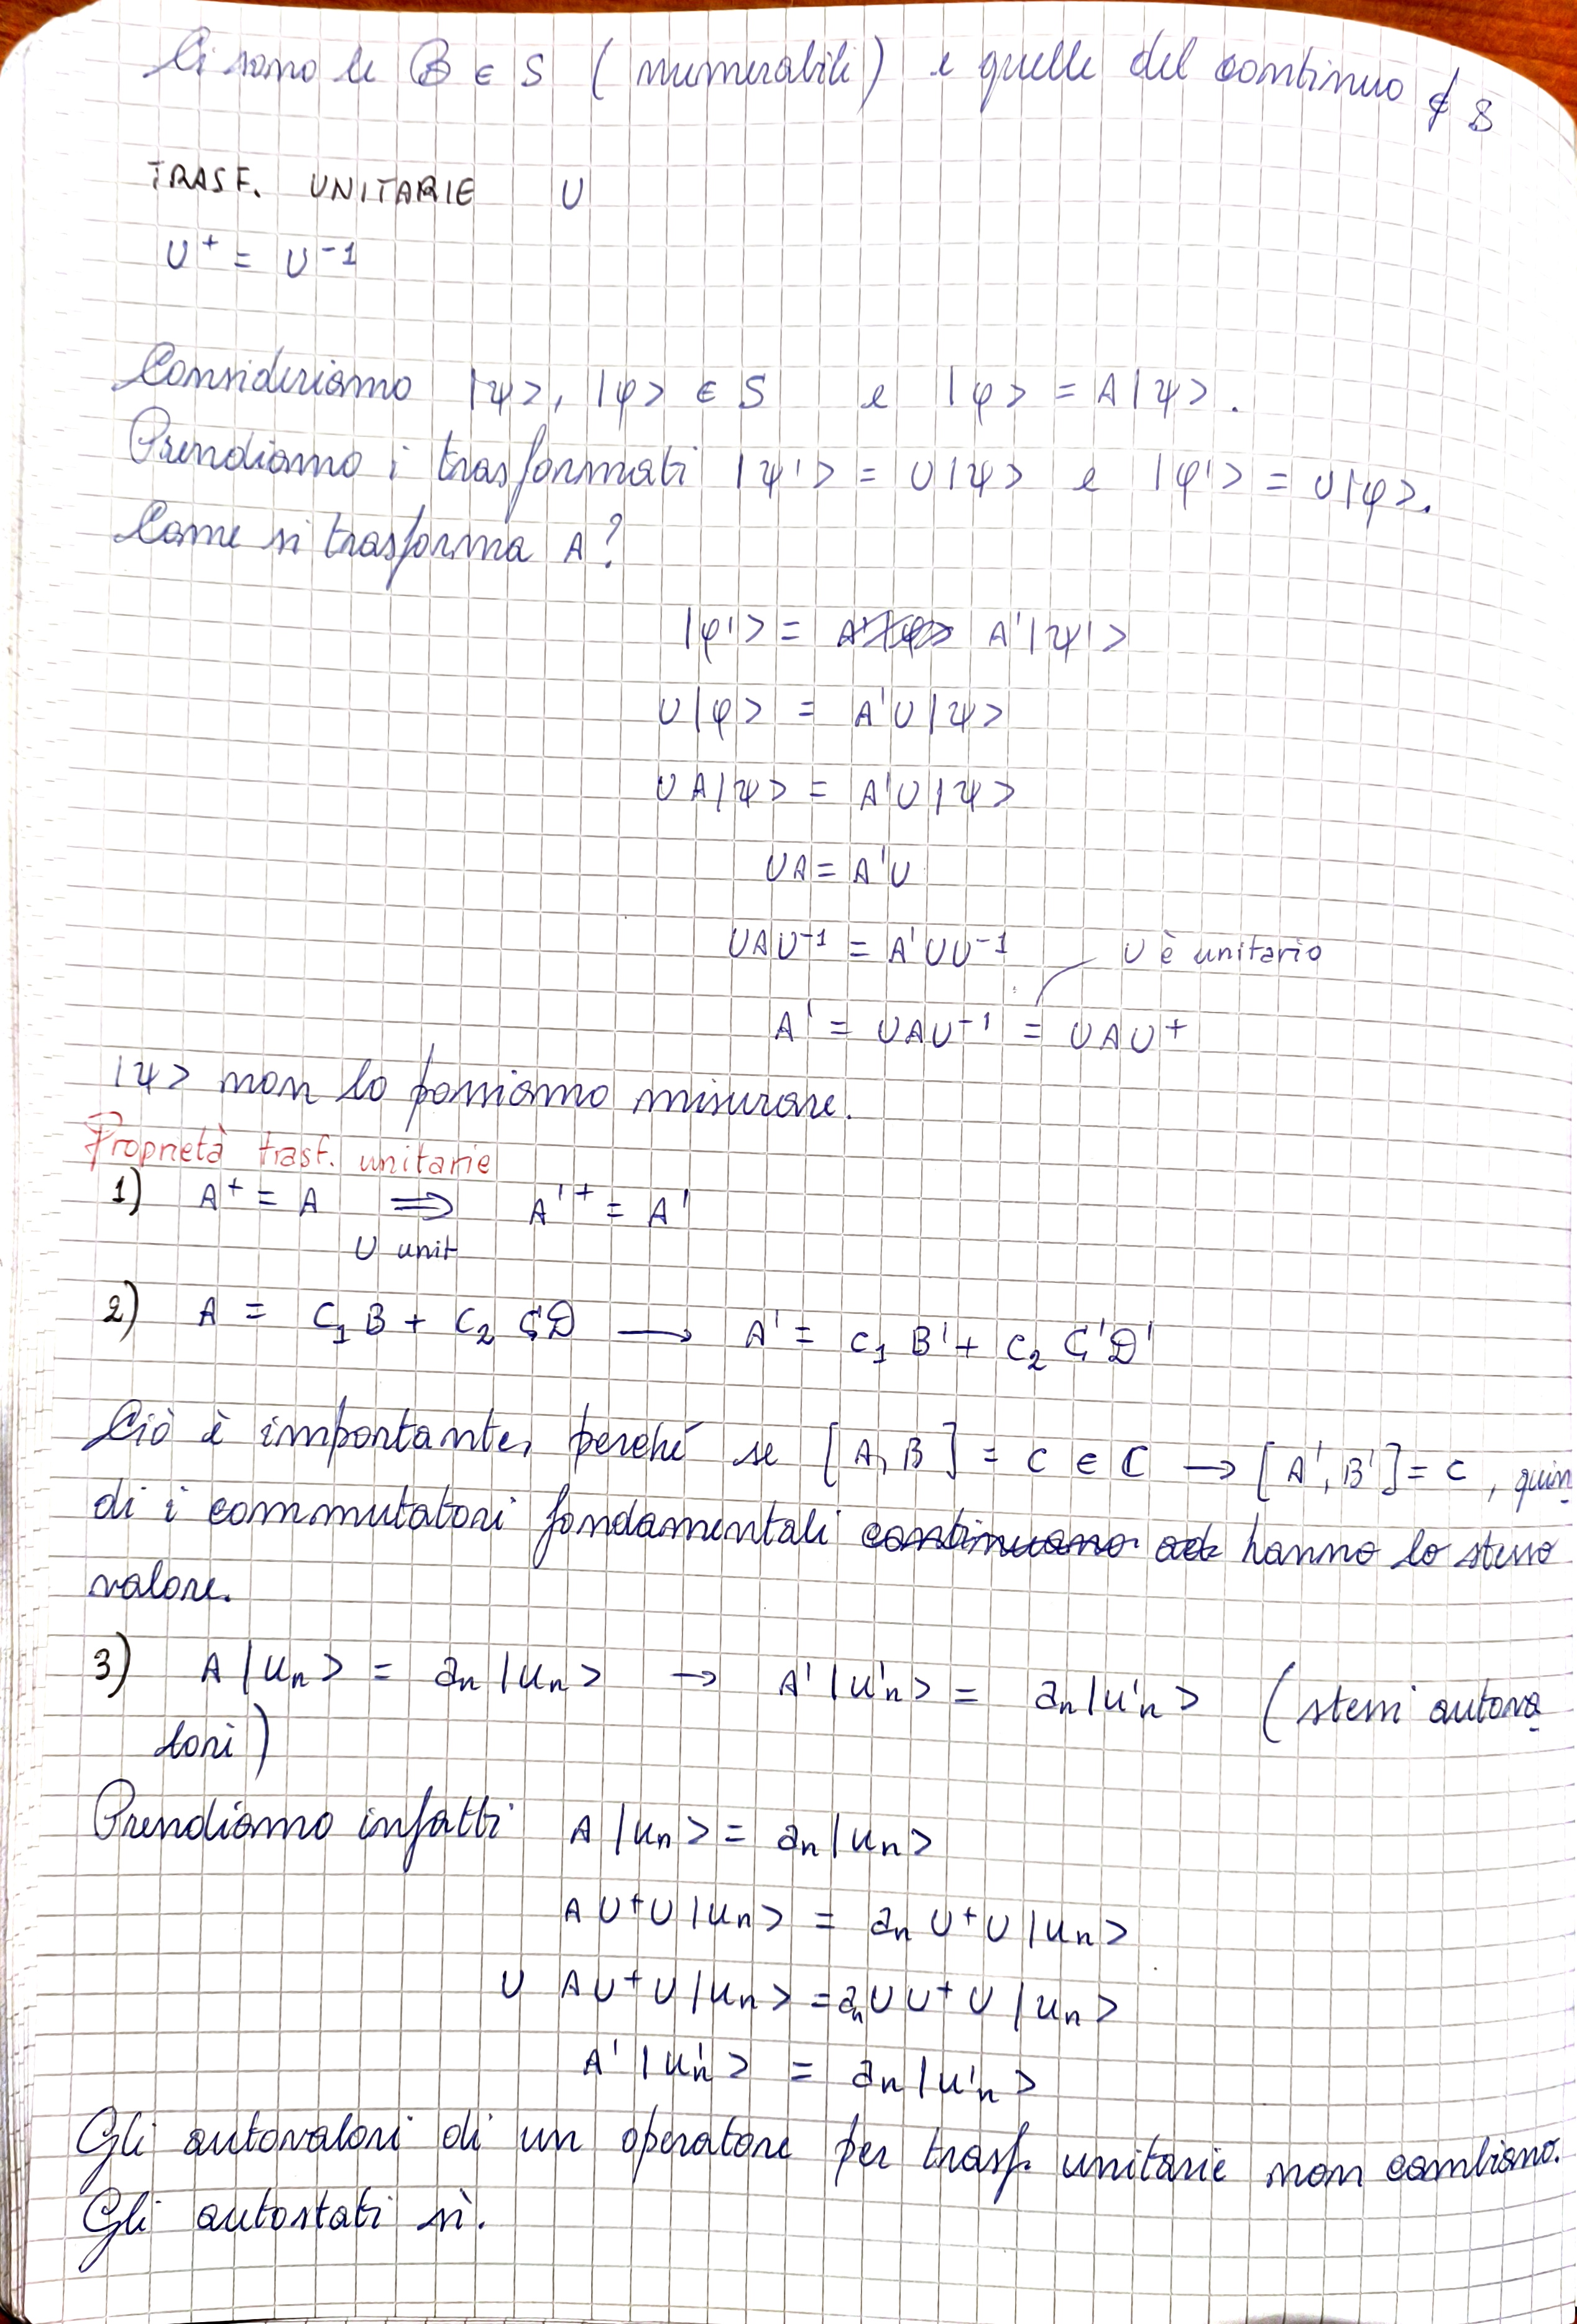 Ci sono le B ∈ S (numerabili) e quelle del continuo ∉ S
TRASF. UNITARIE U
U⁺ = U⁻¹
Consideriamo |ψ>, |φ> ∈ S e |φ> = A|ψ>.
Prendiamo i trasformati |ψ'> = U|ψ> e |φ'> = U|φ>.
Come si trasforma A?
|φ'> = A'|ψ'>
U|φ> = A'U|ψ>
UA|ψ> = A'U|ψ>
UA = A'U
UAU⁻¹ = A'UU⁻¹ U è unitario
A' = UAU⁻¹ = UAU⁺
|ψ> non lo possiamo misurare.
Proprietà trasf. unitarie
1) A⁺ = A ⟹ A'⁺ = A'
U unit
2) A = c₁ B + c₂ CD ⟶ A' = c₁ B' + c₂ C'D'
Ciò è importante, perché se [A, B] = c ∈ ℂ → [A', B'] = c, quin
di i commutatori fondamentali continuano ad hanno lo stesso
valore.
3) A|uₙ> = aₙ|uₙ> → A'|u'ₙ> = aₙ|u'ₙ> (stessi autova
lori)
Prendiamo infatti A|uₙ> = aₙ|uₙ>
AU⁺U|uₙ> = aₙ U⁺U|uₙ>
U AU⁺U|uₙ> = aₙUU⁺U|uₙ>
A'|u'ₙ> = aₙ|u'ₙ>
Gli autovalori di un operatore per trasf. unitarie non cambiano.
Gli autostati sì.